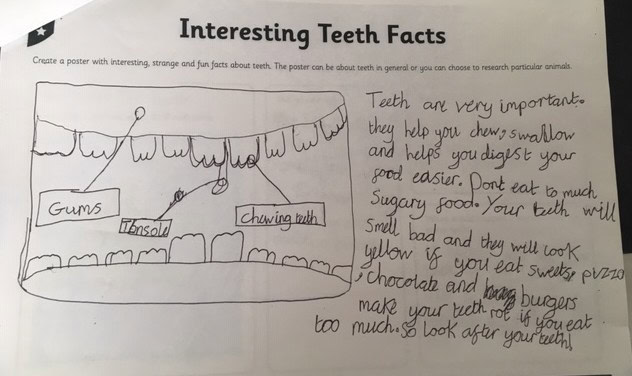 Interesting Teeth Facts
Create a poster with interesting, strange and fun facts about teeth. The poster can be about teeth in general or you can choose to research particular animals.
Gums
Tonsole
chewing teeth
Teeth are very important.
they help you chew, swallow
and helps you digest your
food easier. Dont eat to much
Sugary food. Your teeth will
smell bad and they will look
yellow if you eat sweets, pizza
, Chocolate and burgers
make your teeth rot if you eat
too much. So look after your teeth!